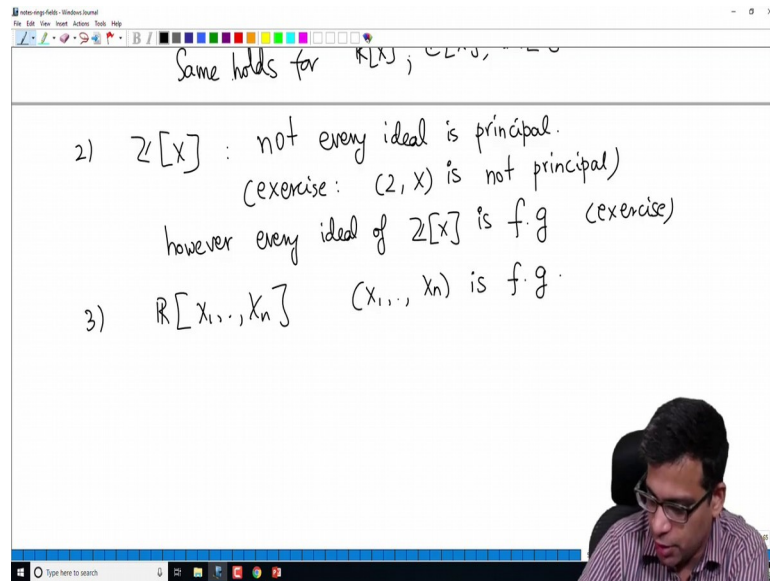 notes-rings-fields - Windows Journal
File Edit View Insert Actions Tools Help
B I
Same holds for
2) ℤ[X] : not every ideal is principal.
(exercise: (2, X) is not principal)
however every ideal of ℤ[X] is f.g (exercise)
3) ℝ[X₁,..,Xₙ] (X₁,.., Xₙ) is f.g.
Type here to search